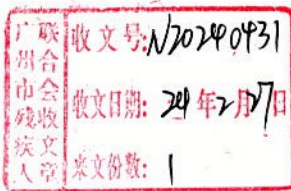 广州市残疾人
联合会收文章
收文号:N20240431
收文日期:24年2月27日
来文份数:1